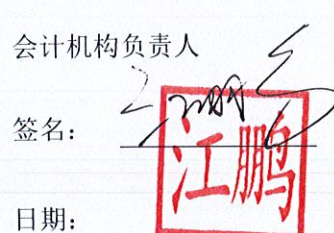 会计机构负责人
签名：
江鹏
日期：